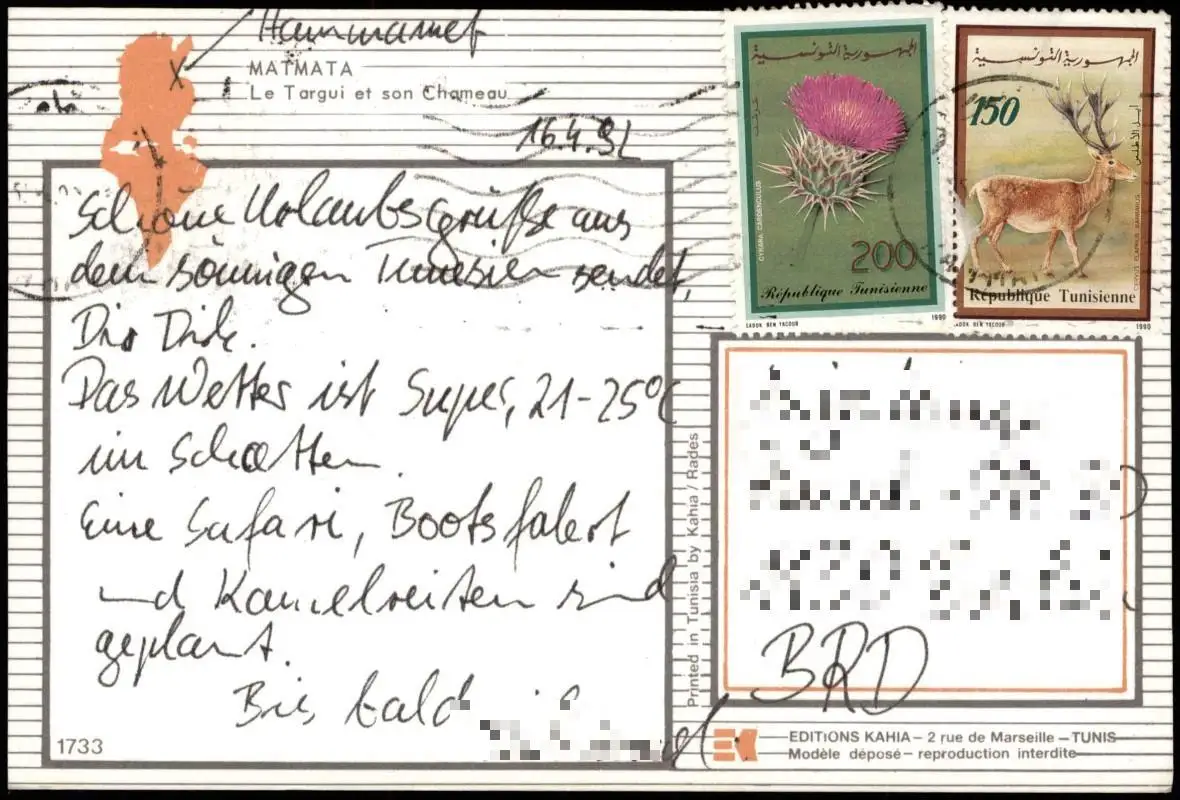 Hammamet
MATMATA
Le Targui et son Chameau
16.4.92
Schöne Urlaubsgrüße aus
dem sonnigen Tunesien sendet,
Dir Dirk.
Das Wetter ist Super, 21-25°C
im Schatten.
Eine Safari, Bootsfahrt
und Kamelreiten sind
geplant.
Bis bald
1733
Printed in Tunisia by Kahia / Rades
الجمهورية التونسية
CYNARA CARDENCULUS
200
République Tunisienne
SADOK BEN YACOUB 1990
الجمهورية التونسية
150
أيل الأطلس
République Tunisienne
SADOK BEN YACOUB 1990
BRD
EK
EDITIONS KAHIA – 2 rue de Marseille – TUNIS
Modèle déposé – reproduction interdite